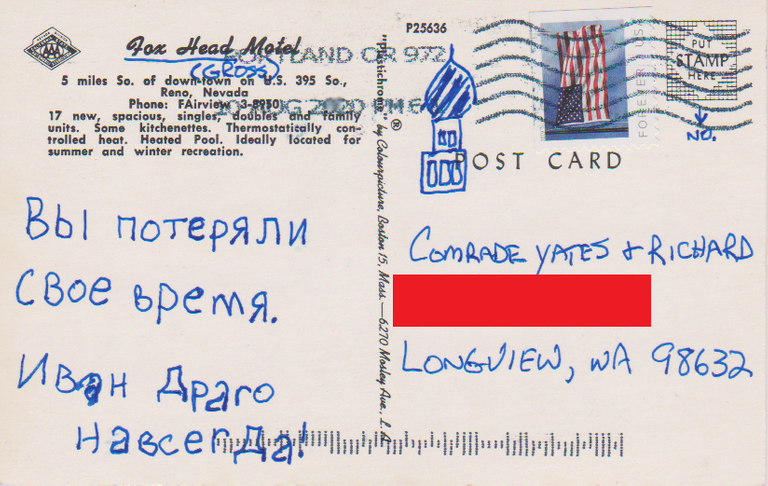 P25636
Fox Head Motel
(GROSS)
PORTLAND OR 972
5 miles So. of down-town on U.S. 395 So.,
Reno, Nevada
Phone: FAirview 3-8950
17 new, spacious, singles, doubles and family
units. Some kitchenettes. Thermostatically con
trolled heat. Heated Pool. Ideally located for
summer and winter recreation.
AAA
AUG 2020 PM
"Plastichrome" ® by Colourpicture, Boston 15, Mass.—6270 Morley Ave., L.A.
FOREVER USA
PUT
STAMP
HERE
NO.
POST CARD
Вы потеряли
свое время.
Иван Драго
навсегда!
COMRADE YATES & RICHARD
LONGVIEW, WA 98632